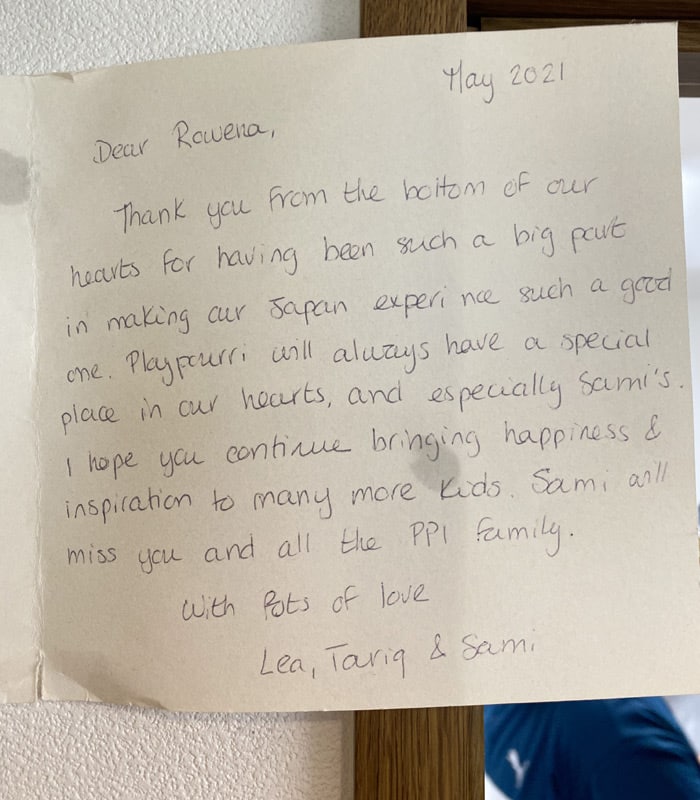 May 2021
Dear Rowena,
Thank you from the bottom of our
hearts for having been such a big part
in making our Japan experi nce such a good
one. Playpourri will always have a special
place in our hearts, and especially Sami's.
I hope you continue bringing happiness &
inspiration to many more kids. Sami will
miss you and all the PPI family.
With Pots of love
Lea, Tariq & Sami